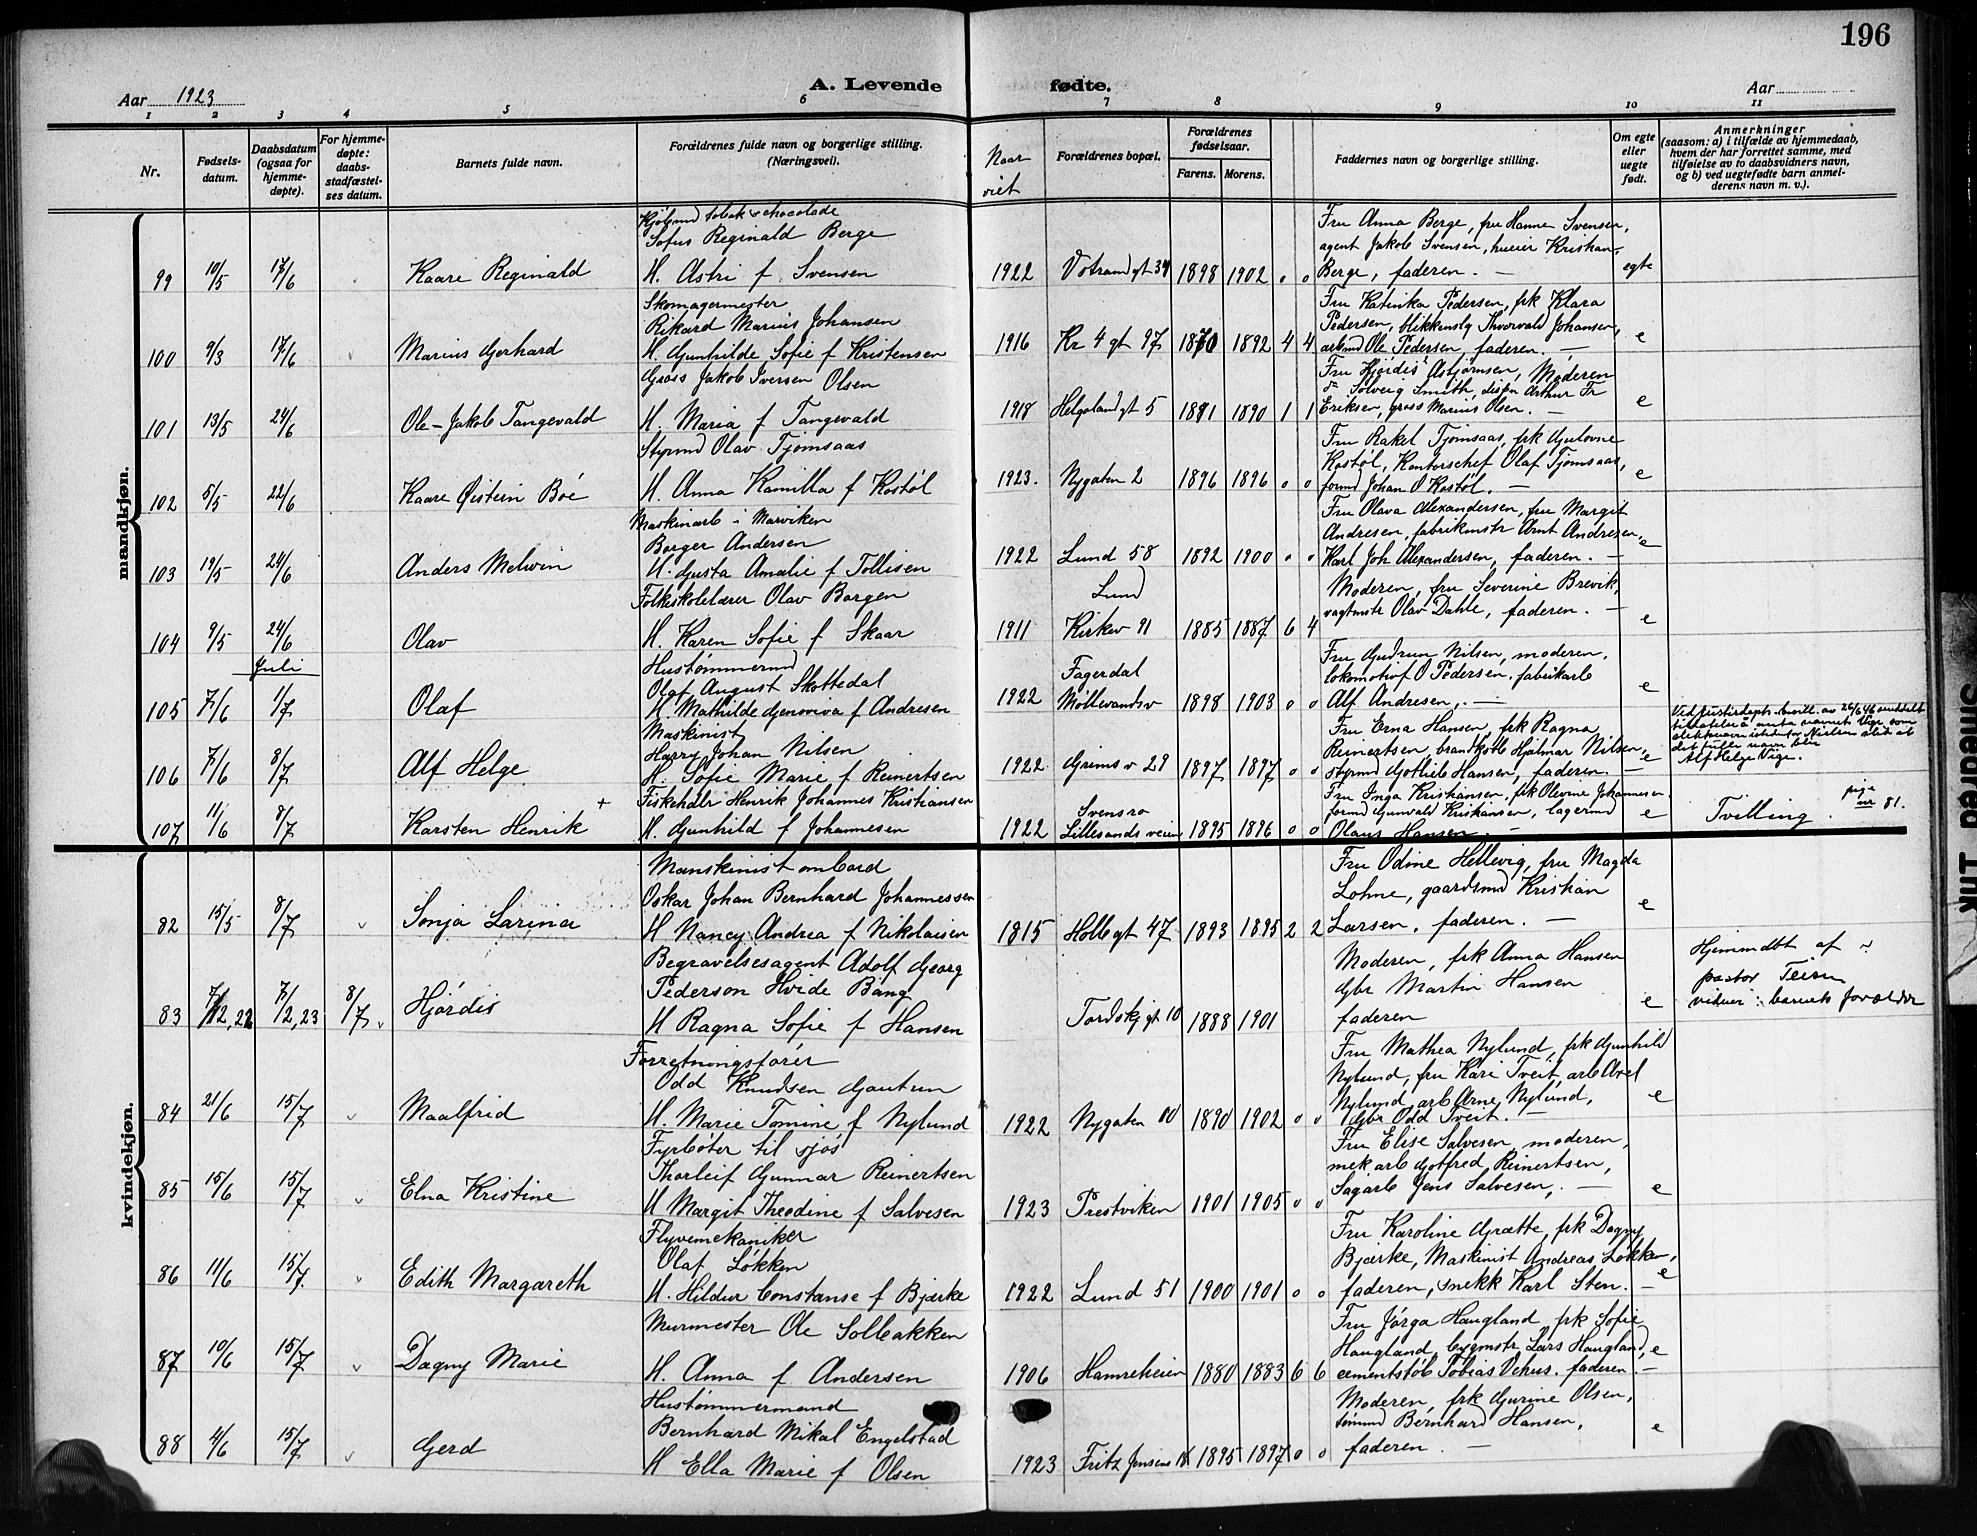 196
A. Levende fødte.
Aar 1923
Aar
1 2 3 4 5 6 7 8 9 10 11
Nr.
Fødselsdatum.
Daabsdatum (ogsaa for hjemmedøpte).
For hjemmedøpte: daabsstadfæstelses datum.
Barnets fulde navn.
Forældrenes fulde navn og borgerlige stilling. (Næringsvei).
Naar viet
Forældrenes bopæl.
Forældrenes fødselsaar.
Farens. Morens.
Faddernes navn og borgerlige stilling.
Om egte eller uegte født.
Anmerkninger (saasom: a) i tilfælde av hjemmedaab, hvem der har forrettet samme, med tilføielse av to daabsvidners navn, og b) ved uegtefødte barn anmelderens navn m. v.).
mandkjøn.
Kjøbmd tobak & chocolade
Sofus Reginald Berge
99 10/5 17/6 Kaare Reginald H. Astri f. Svensen 1922 V. Strandgt 34 1898 1902 0 0
Fru Anna Berge, fru Hanna Svensen,
agent Jakob Svensen, Kristian
Berge, faderen. — egte
Skomagermester
Rikard Marius Johansen
100 9/3 17/6 Marius Gerhard H. Gunhilde Sofie f Kristensen 1916 Kr 4 gt 97 1870 1892 4 4
Fru Katinka Pedersen, frk Klara
Pedersen, blikkenslg Thorvald Johansen,
arbmd Ole Pedersen, faderen. — e
Gross Jakob Iversen Olsen
101 13/5 24/6 Ole-Jakob Tangevald H. Maria f Tangevald 1918 Helgolandgt 5 1881 1890 1 1
Fru Hjørdis Asbjørnsen, Moderen
Solveig Smith, dispn Arthur Fr
Eriksen, gross Marius Olsen. — e
Styrmd Olav Tjomsaas
102 5/5 22/6 Kaare Øistein Boe H. Anna Kamilla f Kostøl 1923. Nygaten 2 1896 1896 0 0
Fru Rakel Tjomsaas, frk Gulovne
Kostøl, Kontorschef Olaf Tjomsaas,
formd Johan O Kostøl. — e
Maskinarb i Marviken
Borger Andersen
103 19/5 24/6 Anders Melvin H. Gusta Amalie f Tollisen 1922 Lund 58 1892 1900 0 0
Fru Olava Alexandersen, fru Margit
Andresen, fabrikmstr Arnt Andresen,
Karl Joh Alexandersen, faderen. — e
Folkeskolelærer Olav Borgen
104 9/5 24/6 Olav H. Karen Sofie f Skaar 1911 Lund Kirkev 91 1885 1887 6 4
Moderen, fru Severine Brevik,
vagtmstr Olav Dahle, faderen. — e
Juli
Hustømmermd
Olaf August Skottedal
105 7/6 1/7 Olaf H. Mathilde Genoviva f Andresen 1922 Fagerdal Møllevandsv 1898 1903 0 0
Fru Gudrun Nilsen, moderen,
lokomotivf O Pedersen, fabrikarb
Alf Andresen, — e
Maskinist
Harry Johan Nilsen
106 7/6 8/7 Alf Helge H. Sofie Marie f Reinertsen 1922 Grims v 29 1897 1897 0 0
Fru Erna Hansen, frk Ragna
Reinertsen, brandkstb Hjalmar Nilsen,
styrmd Gotlieb Hansen, faderen. — e
Ved justisdepts bevill. av 26/6 46 meddelt
tillatelse å anta navnet Vige som
slektsnavn istedenfor Nielsen slik at
det fulle navn blir
Alf Helge Vige.
Fiskehdlr Henrik Johannes Kristiansen
107 11/6 8/7 Karsten Henrik + H. Gunhild f Johannesen 1922 Svensro Lillesandsveien 1895 1896 0 0
Fru Inga Kristiansen, frk Olevine Johannesen
formd Gunvald Kristiansen, lagermd
Olaus Hansen. — e Tvilling pige nr 81.
kvindekjøn.
Manskinist ombord
Oskar Johan Bernhard Johannessen
82 15/5 8/7 Sonja Larina H Nancy Andrea f Nikolaisen 1815 Hollegt 47 1893 1895 2 2
Fru Odine Hellevig, fru Magda
Lohne, gaardsmd Kristian
Larsen, faderen. — e
Begravelsesagent Adolf Georg
Pederson Hvide Bang
83 7/12,22 7/2,23 8/7 Hjørdis H Ragna Sofie f Hansen Tordskjgt 10 1888 1901
Moderen, frk Anna Hansen
Gbr Martin Hansen
faderen e
Hjemmdbt af
pastor Teisen
vidner: barnets forældre
Forretningsfører
Odd Knudsen Gautun
84 21/6 15/7 Maalfrid H. Marie Tomine f Nylund 1922 Nygaten 80 1890 1902 0 0
Fru Mathea Nylund, frk Gunhild
Nylund, fru Kari Tveit, arb Axel
Nylund, arb Arne Nylund,
Gbr Odd Tveit. — e
Fyrbøter til sjøs
Thorleif Gunnar Reinertsen
85 15/6 15/7 Elna Kristine H Margit Theodine f Salvesen 1923 Prestviken 1901 1905 0 0
Fru Elise Salvesen, moderen,
mek arb Gotfred Reinertsen,
Sagarb Jens Salvesen, — e
Flyvemekaniker
Olaf Løkken
86 11/6 15/7 Edith Margareth H. Hildur Constanse f Bjerke 1922 Lund 51 1900 1901 0 0
Fru Karoline Grætte, frk Dagny
Bjerke, Maskinist Andreas Løkken,
faderen, snekk Karl Sten. — e
Murmester Ole Solbakken
87 10/6 15/7 Dagny Marie H. Anna f Andersen 1906 Hamreheien 1880 1883 6 6
Fru Jørga Haugland, frk Sofie
Haugland, bygmstr Lars Haugland,
cementstøb Tobias Vehus. faderen — e
Hustømmermand
Bernhard Mikal Engelstad
88 4/6 15/7 Gerd H Ella Marie f Olsen 1923 Fritz Jensens 1895 1897 0 0
Moderen, frk Gurine Olsen,
tømmd Bernhard Hansen,
faderen — e